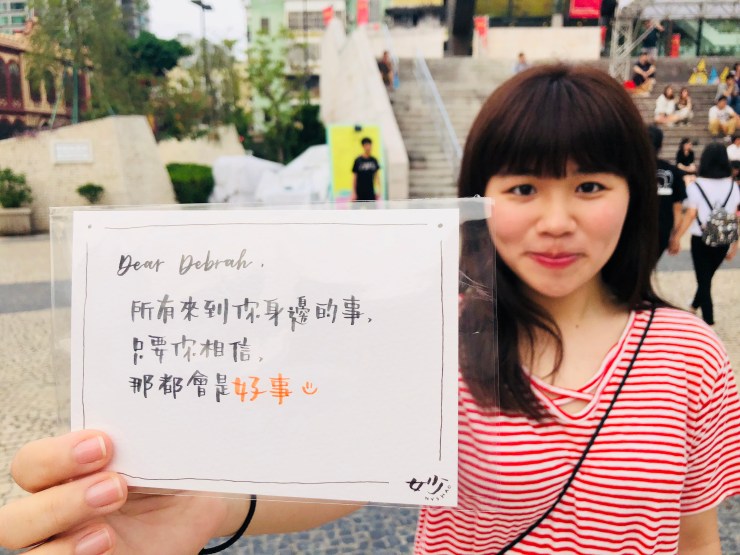 Dear Debrah.
所有來到你身邊的事,
只要你相信,
那都會是好事
妙